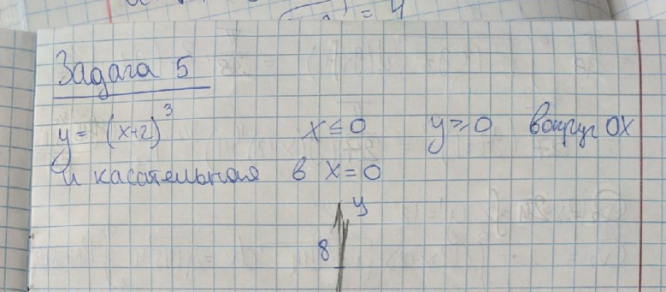 = 4
Задача 5
y = (x+2)³ x ≤ 0 y ≥ 0 вокруг OX
и касательная в x = 0
y
8